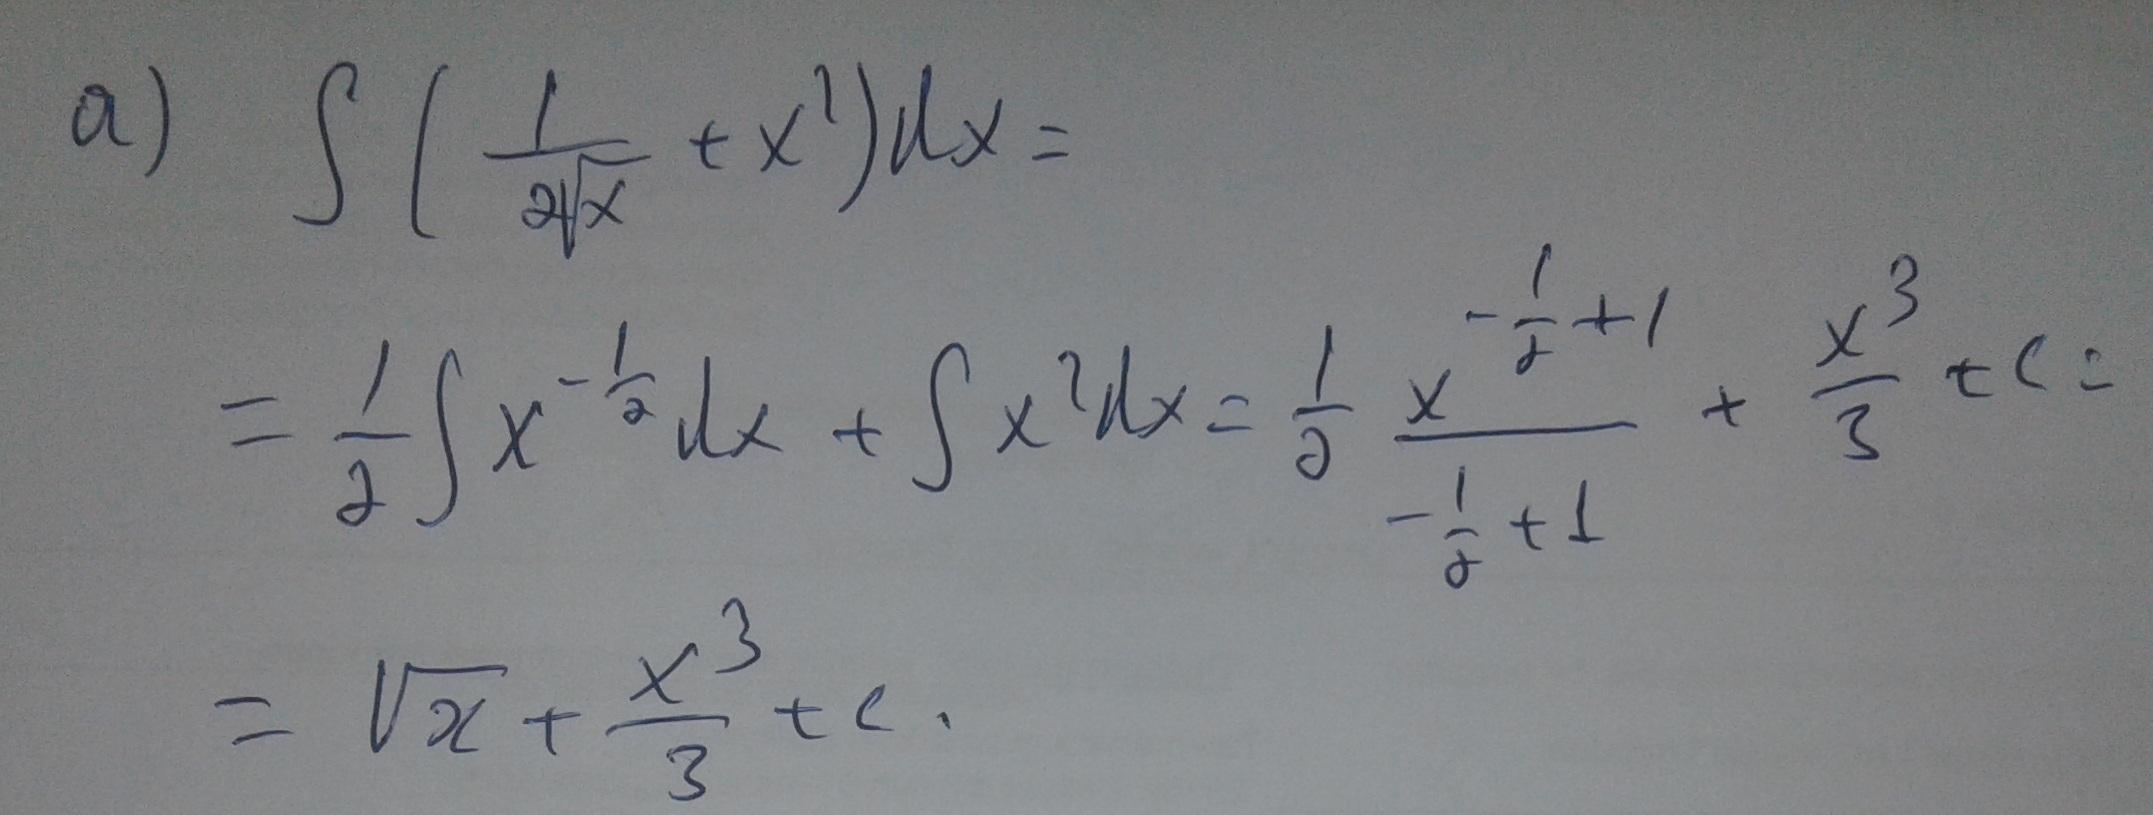 a) ∫ ( 1/(2√x) + x² ) dx =
= 1/2 ∫ x^(-1/2) dx + ∫ x² dx = 1/2 · x^(-1/2+1)/(-1/2+1) + x³/3 + c =
= √x + x³/3 + c.